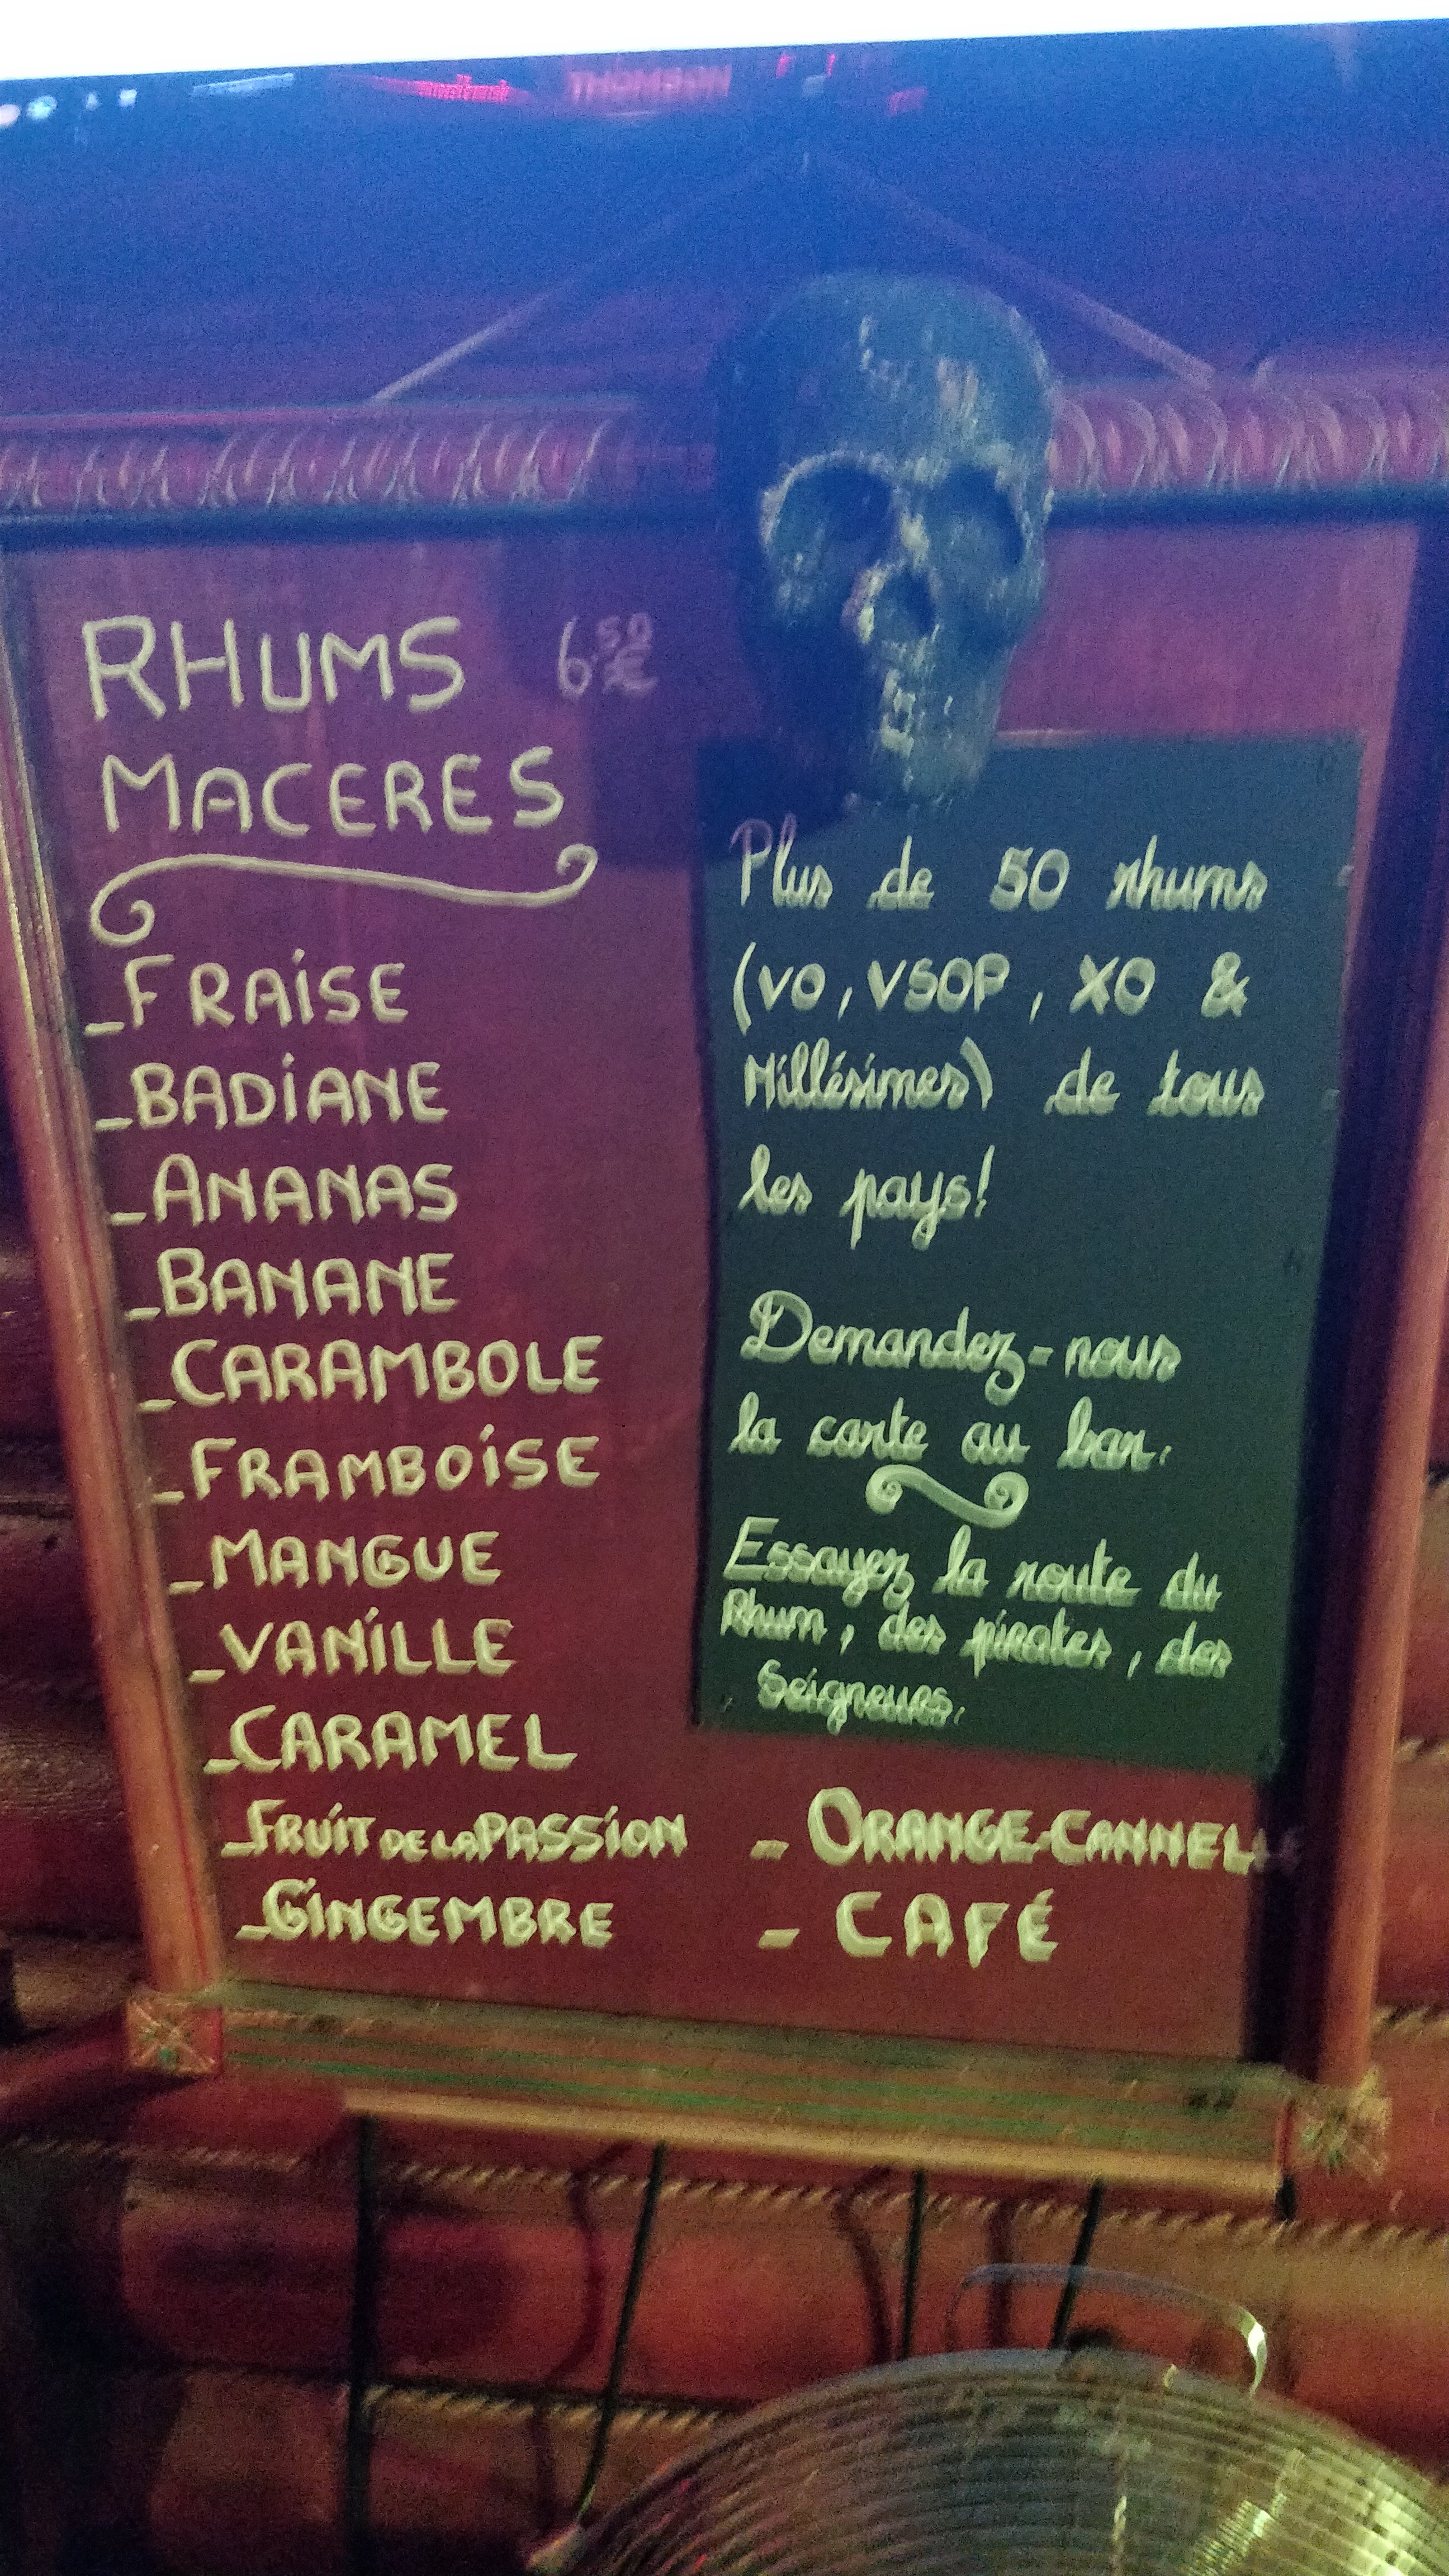 THOMSON
RHUMS 6.50€
MACERES
_FRAiSE
_BADiANE
_ANANAS
_BANANE
_CARAMBOLE
_FRAMBOiSE
_MANGUE
_VANiLLE
_CARAMEL
_FRUiT DE LA PASSiON
_GiNGEMBRE
Plus de 50 rhums
(VO, VSOP, XO &
Millésimes) de tous
les pays!
Demandez-nous
la carte au bar.
Essayez la route du
Rhum, des pirates, des
Seigneurs.
- ORANGE-CANNELLE
- CAFÉ